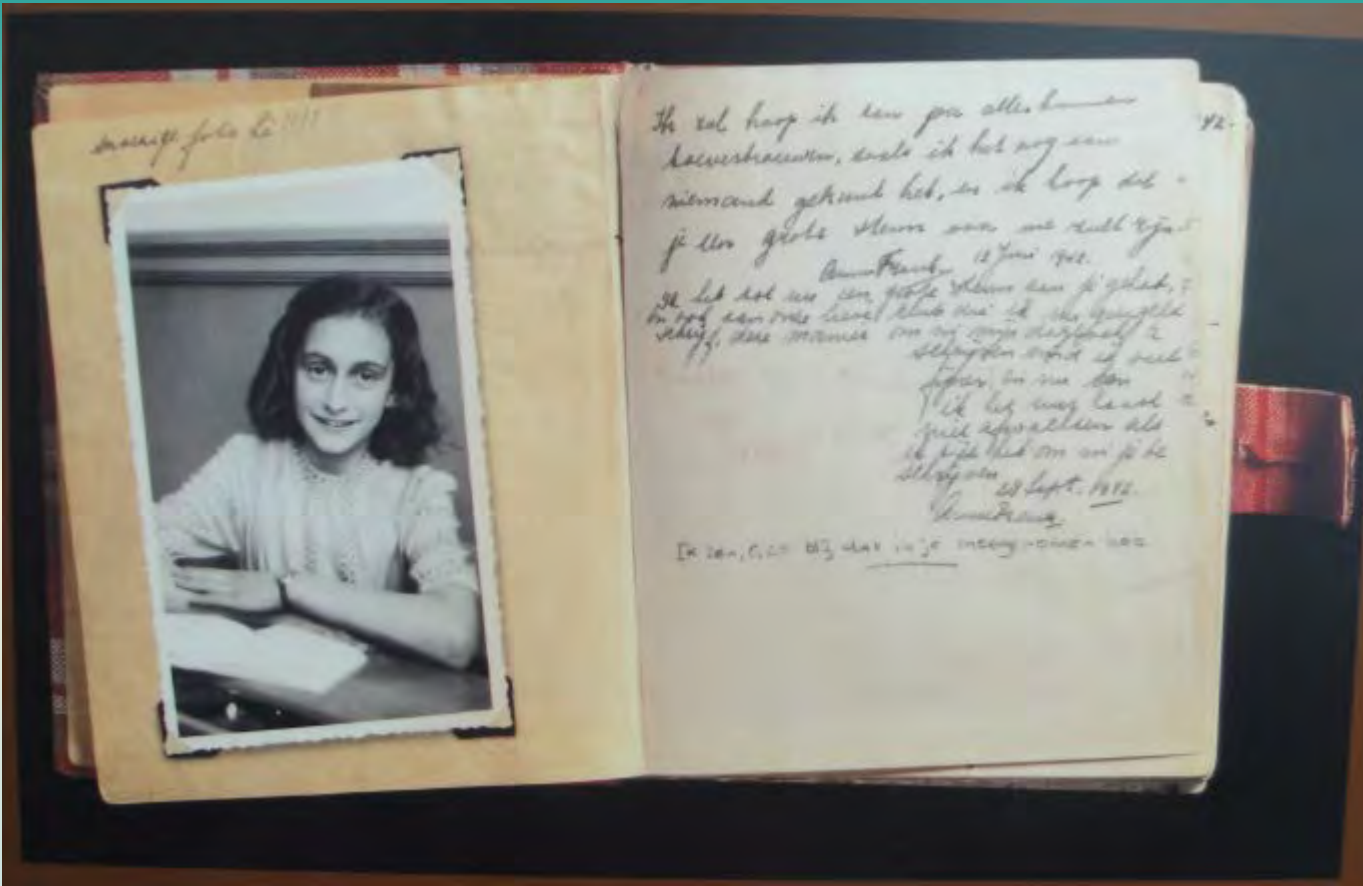 snoezige foto hè !!!?
Ik zal hoop ik aan jou alles kunnen
toevertrouwen, zoals ik het nog aan
niemand gekund heb, en ik hoop dat
je een grote steun voor me zult zijn.
Anne Frank. 12 Juni 1942.
Ik heb tot nu een grote steun aan je gehad,
en ook aan onze lieve club die ik nu geregeld
schrijf, deze manier om in mijn dagboek te
schrijven vind ik veel
fijner en nu kan
ik het uur haast
niet afwachten als
ik tijd heb om in je te
schrijven.
28 Sept. 1942.
Anne Frank.
Ik ben, o, zo blij dat ik je meegenomen heb
42.